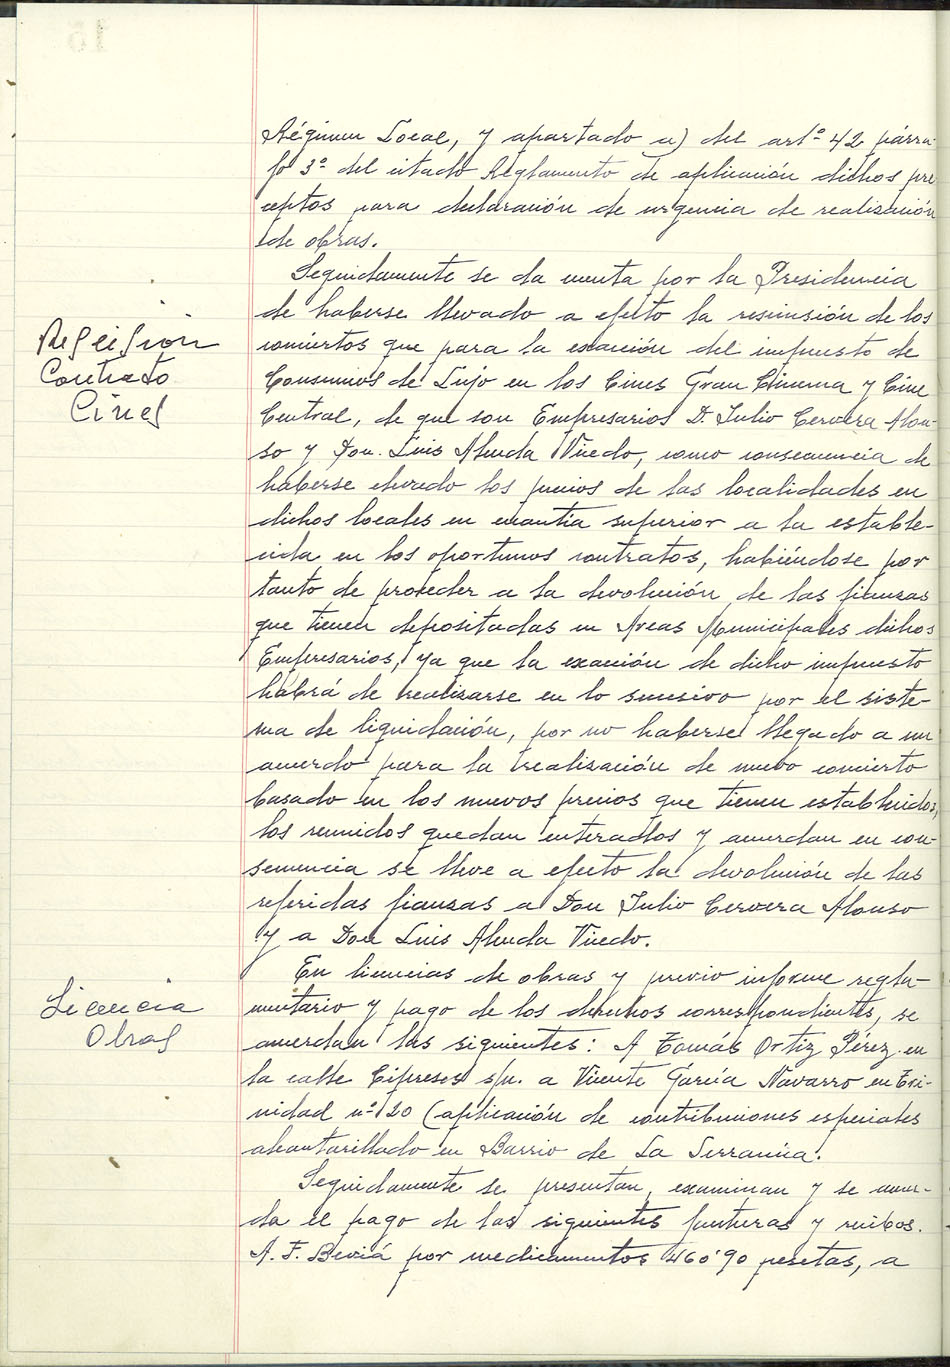 Régimen Local, y apartado a) del artº 42 párra-
fo 3º del citado Reglamento de aplicación dichos pre
ceptos para declaración de urgencia de realización
de obras.
Seguidamente se da cuenta por la Presidencia
de haberse llevado a efecto la rescisión de los
Rescision
Contrato
Cines
conciertos que para la exacción del impuesto de
Consumos de Lujo en los Cines Gran Cinema y Cine
Central, de que son Empresarios D. Julio Cervera Alon-
so y Don. Luis Ahuda Viñedo, como consecuencia de
haberse elevado los precios de las localidades en
dichos locales en cuantía superior a la estable-
cida en los oportunos contratos, habiéndose por
tanto de proceder a la devolución de las fianzas
que tienen depositadas en Arcas Municipales dichos
Empresarios, ya que la exacción de dicho impuesto
habrá de realizarse en lo sucesivo por el siste-
ma de liquidación, por no haberse llegado a un
acuerdo para la realización de nuevo concierto
basado en los nuevos precios que tienen establecidos,
los reunidos quedan enterados y acuerdan en con-
secuencia se lleve a efecto la devolución de las
referidas fianzas a Don Julio Cervera Alonso
y a Don Luis Ahuda Viñedo.
Licencia
Obras
En licencias de obras y previo informe regla-
mentario y pago de los derechos correspondientes, se
acuerdan las siguientes: A Tomás Ortiz Pérez en
la calle Cipreses s/n. a Vicente García Navarro en Tri-
nidad nº 20 (aplicación de contribuciones especiales
alcantarillado en Barrio de La Serranica.
Seguidamente se presentan, examinan y se acuer-
da el pago de las siguientes facturas y recibos.
A. F. Beviá por medicamentos 460'90 pesetas, a